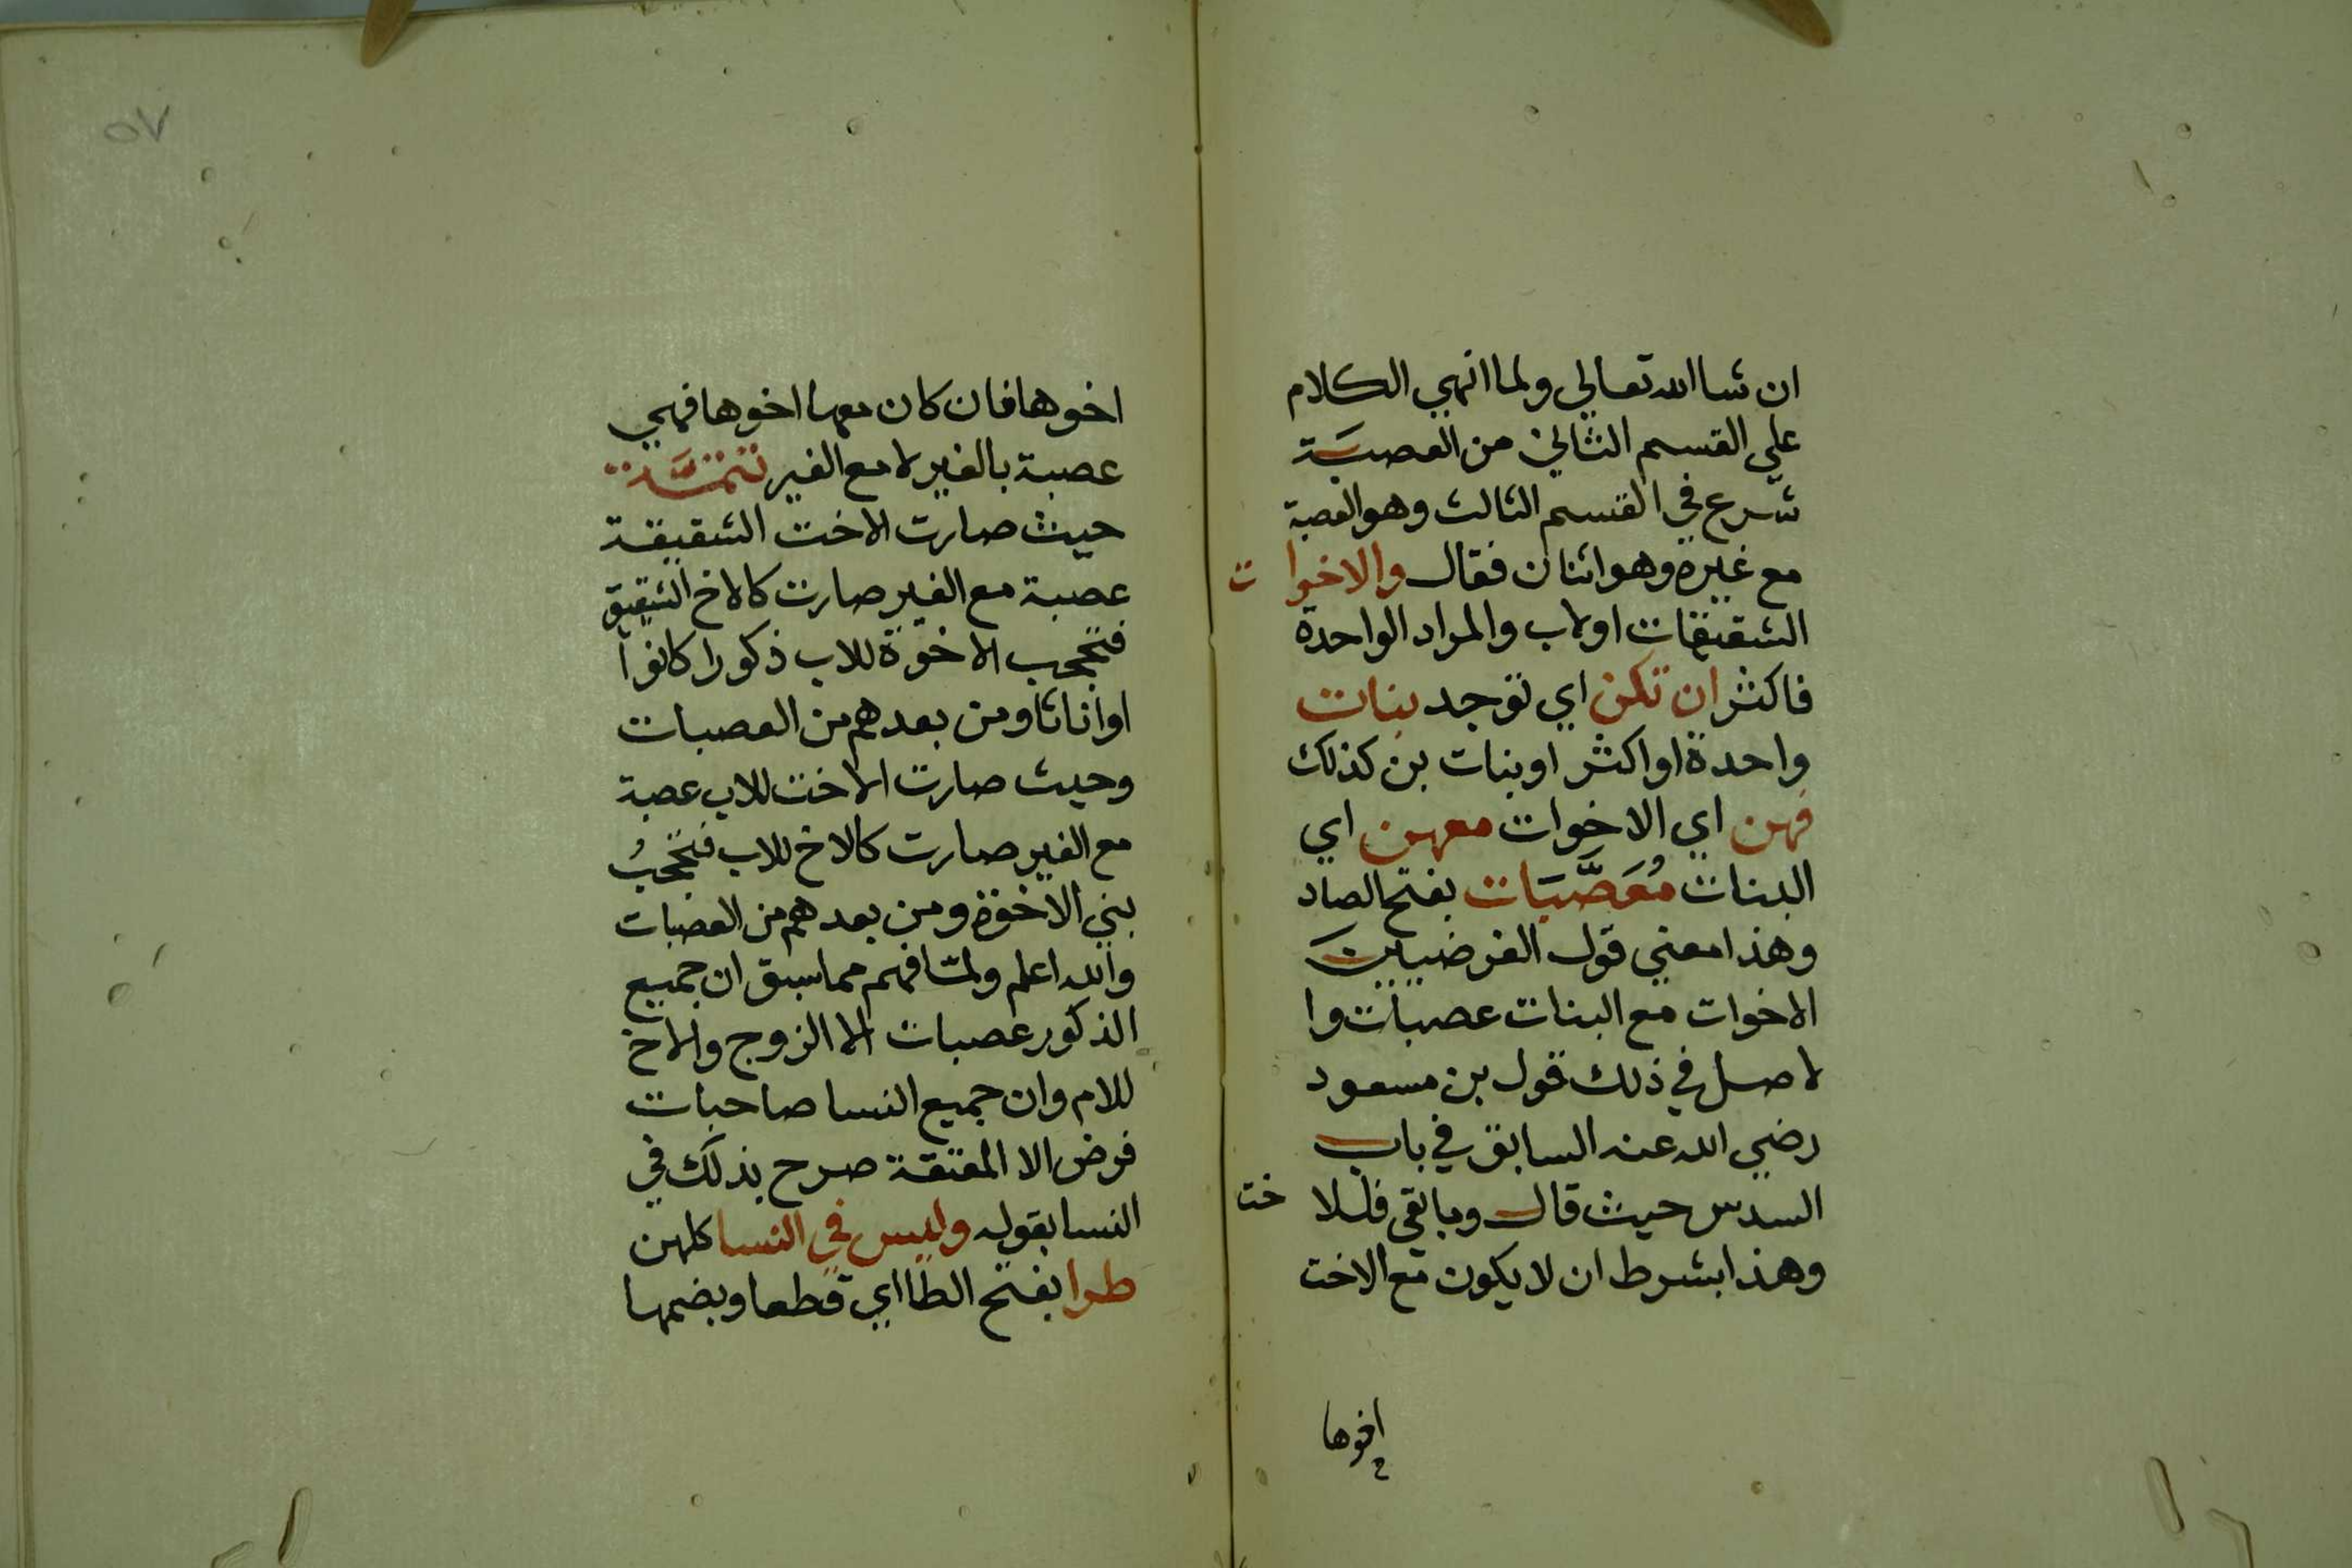 ان شا الله تعالي ولما انهي الكلام
علي القسم الثاني من العصبة
شرع في القسم الثالث وهو العصبة
مع غيره وهو اثنان فقال والاخوات
الشقيقات اولاب والمراد الواحدة
فاكثر ان تكن اي توجد بنات
واحدة او اكثر او بنات بن كذلك
فهن اي الاخوات معهن اي
البنات مُعَصَّبَات بفتح الصاد
وهذا معني قول الفرضيين
الاخوات مع البنات عصبات وا
لاصل في ذلك قول بن مسعود
رضي الله عنه السابق في باب
السدس حيث قال وما بقي فللاخت
وهذا بشرط ان لا يكون مع الاخت
اخوها
٥٧
اخوها فان كان معها اخوها فهي
عصبة بالغير لا مع الغير تتمَّة
حيث صارت الاخت الشقيقة
عصبة مع الغير صارت كالاخ الشقيق
فتحجب الاخوة للاب ذكورا كانوا
او اناثا ومن بعدهم من العصبات
وحيث صارت الاخت للاب عصبة
مع الغير صارت كالاخ للاب فتحجبُ
بني الاخوة ومن بعدهم من العصبات
والله اعلم ولما فهم مما سبق ان جميع
الذكور عصبات الا الزوج والاخ
للام وان جميع النسا صاحبات
فرض الا المعتقة صرح بذلك في
النسا بقوله وليس في النسا كلهن
طرا بفتح الطا اي قطعا وبضمها